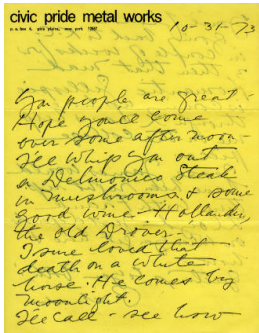 civic pride metal works
p. o. box 6, pine plains, new york 12567
10-31-73
You people are great -
Hope you'll come
over some afternoon -
I'll whip you out
a Delmonico Steak
in mushrooms & some
good wine - Hollander,
the old Drover -
I sure loved that
death on a white
horse. He comes by
moonlight.
I'll call - see how